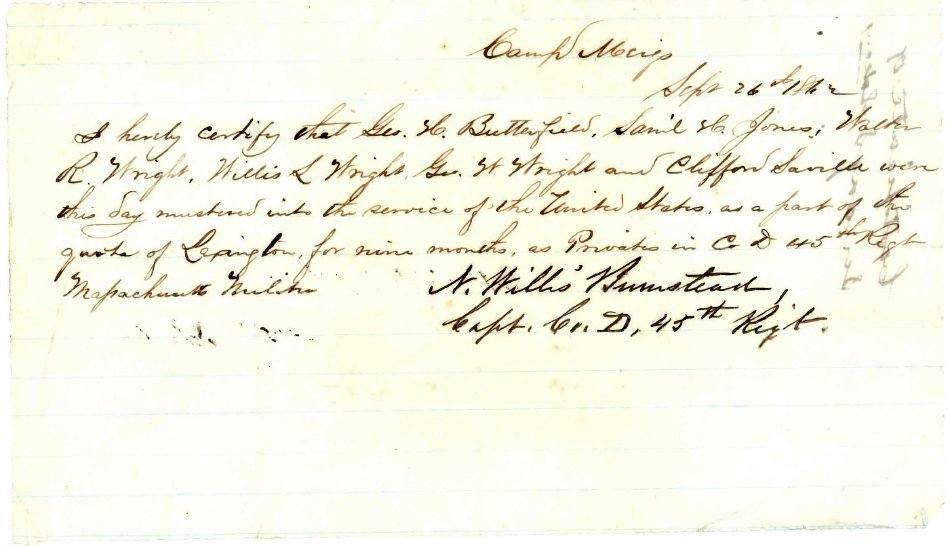 Camp Meigs
Sept 26th 1862
I hereby certify that Geo. H. Butterfield, Sam'l H. Jones, Walter
R. Wright, Willis L Wright, Geo. W Wright and Clifford Saville were
this day mustered into the service of the United States, as a part of the
quota of Lexington, for nine months, as Privates in Co D 45th Regt
Massachusetts Militia
N. Willis Bumstead,
Capt. Co. D, 45th Regt.